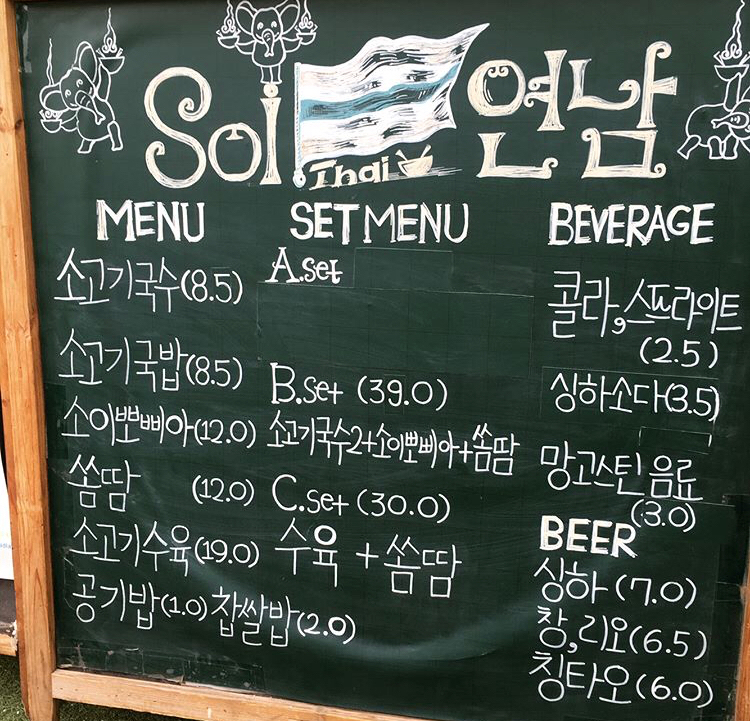 Soi Thai 연남
MENU
소고기국수(8.5)
소고기국밥(8.5)
소이뽀삐아(12.0)
쏨땀 (12.0)
소고기수육(19.0)
공기밥(1.0) 찹쌀밥(2.0)
SET MENU
A.set
B.set (39.0)
소고기국수2+소이뽀삐아+쏨땀
C.set (30.0)
수육 + 쏨땀
BEVERAGE
콜라,스프라이트
(2.5)
싱하소다(3.5)
망고스틴 음료
(3.0)
BEER
싱하 (7.0)
창,리오(6.5)
칭타오(6.0)